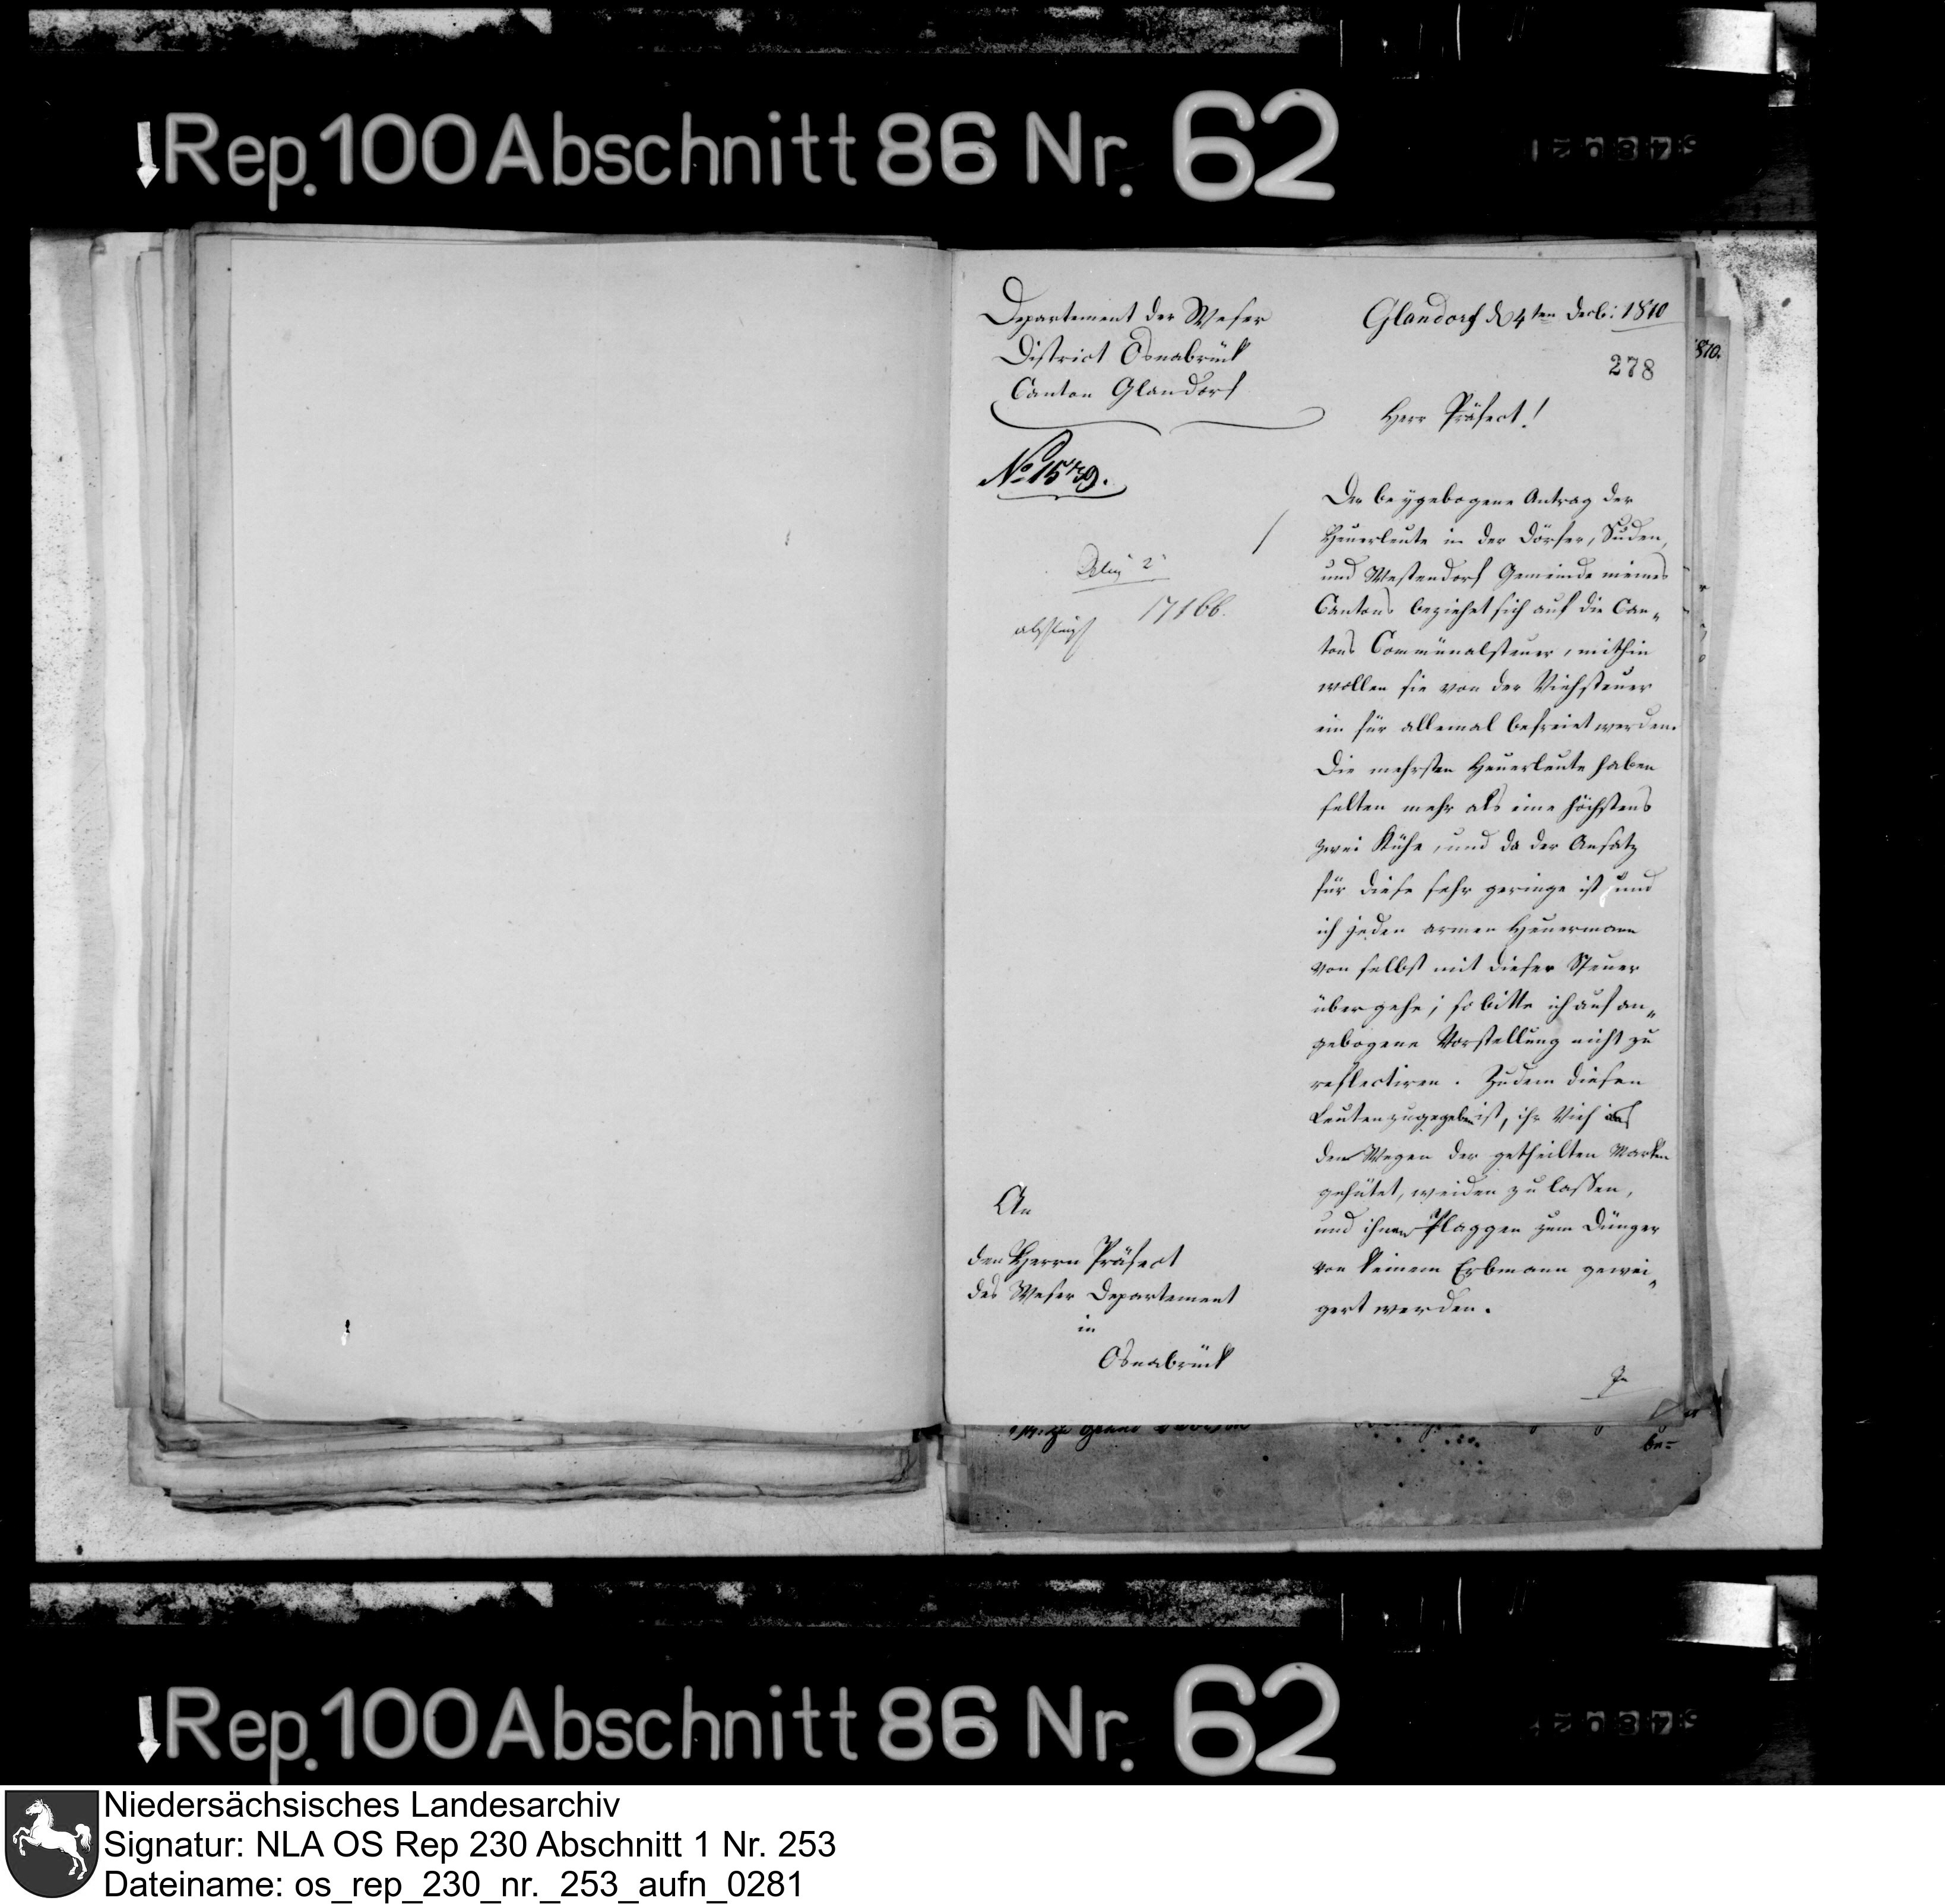 Rep. 100 Abschnitt 86 Nr. 62
Departement der Weser
District Osnabrück
Canton Glandorf
No 1579.
17166.
Glandorf d 4ten Decb: 1810
278
1810.
Herr Präfect!
Der beygebogene Antrag der
Heuerleute in der Dörfer, Süden,
und Westendorf Gemeinde meines
Cantons beziehet sich auf die Can„
tons Communalsteuer, mithin
wollen sie von der Viehsteuer
ein für allemal befreiet werden.
Die mehrsten Heuerleute haben
selten mehr als eine höchstens
zwei Kühe, und da der Ansatz
für diese sehr geringe ist, und
ich jeden armen Heuermann
von selbst mit dieser Steuer
übergehe; so bitte ich auf an„
gebogene Vorstellung nicht zu
reflectiren. Zudem diesen
Leuten zugegeben ist, ihr Vieh
den Wegen der getheilten Marken
gehütet, weiden zu lassen,
und ihnen Plaggen zum Dünger
von keinem Erbmann gewei„
gert werden.
An
den Herrn Präfect
des Weser Departement
in
Osnabrück
be=
Rep. 100 Abschnitt 86 Nr. 62
Niedersächsisches Landesarchiv
Signatur: NLA OS Rep 230 Abschnitt 1 Nr. 253
Dateiname: os_rep_230_nr._253_aufn_0281